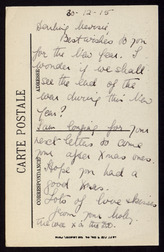 30-12-15
Darling Mersie
Best wishes to you
for the New Year. I
wonder if we shall
see the end of the
war during this New
Year?
I am longing for your
next letters to come
your after Xmas ones.
Hope you had a
Good Xmas.
Lots of love &
from your
CARTE POSTALE
ADRESSE
CORRESPONDANCE